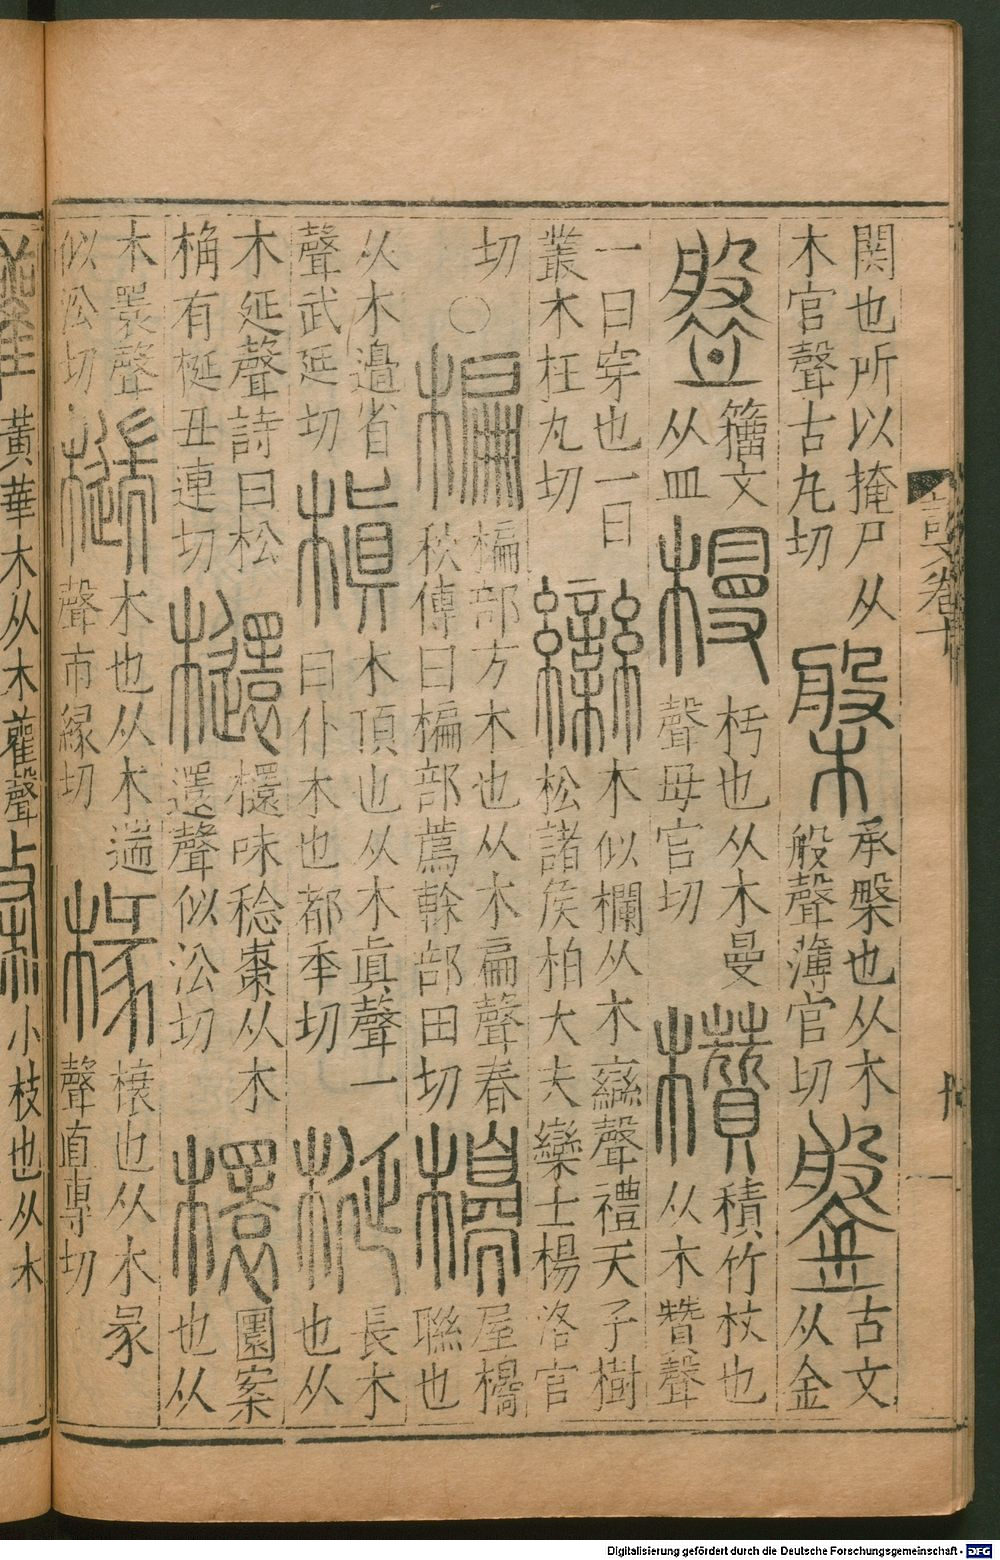 関也所以掩戸从
木官聲古丸切
槃
承槃也从木
般聲薄官切
鎜
古文
从金
盤
籀文
从皿
槾
杇也从木曼
聲母官切
欑
積竹杖也
从木贊聲
一曰穿也一曰
叢木在丸切
欒
木似欄从木䜌聲禮天子樹
松諸侯柏大夫欒士楊洛官
切○
楄
楄部方木也从木扁聲春
秋傳曰楄部薦榦部田切
櫋
屋櫋
聯也
从木邊省
聲武延切
槙
木頂也从木眞聲一
曰仆木也都年切
梴
長木
也从
木延聲詩曰松
桷有梴丑連切
檈
檈味稔棗从木
還聲似㳂切
檈
圜案
也从
木瞏聲
似㳂切
椯
木也从木遄
聲市緣切
椽
榱也从木彖
聲直專切
説文卷七
黃華木从木雚聲
小枝也从木
Digitalisierung gefördert durch die Deutsche Forschungsgemeinschaft - DFG